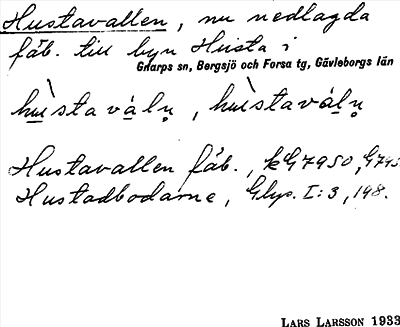 Hustavallen, nu nedlagda
fäb. till byn Husta i
Gnarps sn, Bergsjö och Forsa tg, Gävleborgs län
Hustavallen fäb., kG7950,
Hustadbodarne, Glys. I:3, 198.
LARS LARSSON 1933